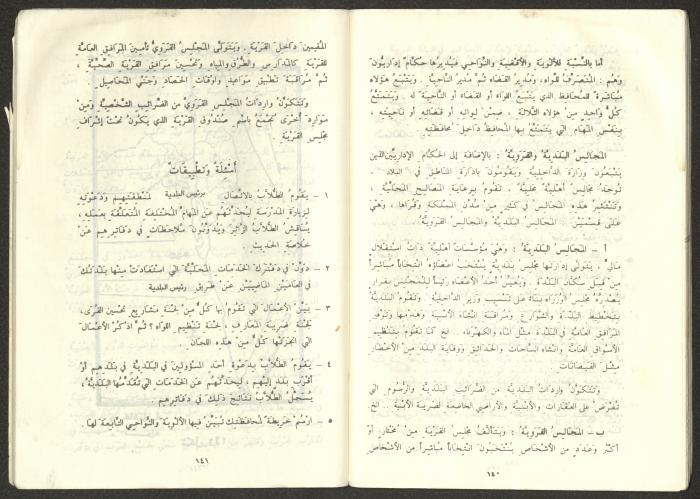 أما بالنسبة للألوية والأقضية والنواحي فيديرها حكام إداريون
وهم : المتصرف للواء، ومدير القضاء ثم مدير الناحية . ويتبع هؤلاء
مباشرة للمحافظ الذي يتبع اللواء أو القضاء أو الناحية له . ويتمتع
كل واحد من هؤلاء الثلاثة ، ضمن لوائه أو قضائه أو ناحيته ،
بنفس المهام التي يتمتع بها المحافظ داخل محافظته .
المجالس البلدية والقروية : بالإضافة إلى الحكام الإداريين الذين
يتبعون وزارة الداخلية ويقومون بإدارة المناطق في البلاد ،
توجد مجالس أهلية محلية . تقوم برعاية المصالح المحلية ،
وتنتشر هذه المجالس في كثير من مدن المملكة وقراها ، وهي
على قسمين : المجالس البلدية والمجالس القروية .
أ – المجالس البلدية : وهي مؤسسات أهلية ذات استقلال
مالي ، يتولى إدارتها مجلس بلدية ينتخب أعضاؤه انتخاباً مباشراً
من قبل سكان البلدة . ويعين أحد الأعضاء رئيساً للمجلس بقرار
يصدره مجلس الوزراء بناء على تنسيب وزير الداخلية . وتقوم البلدية
بتخطيط البلدة والشوارع ومراقبة إنشاء الأبنية وهدمها وتوفير
المرافق العامة في البلدة مثل الماء والكهرباء .. الخ كما تقوم بتنظيم
الأسواق العامة وإنشاء الساحات والحدائق ووقاية البلد من الأخطار
مثل الفيضانات .
وتتكون واردات البلدية من الضرائب البلدية والرسوم التي
تفرض على العقارات والأبنية والأراضي الخاضعة لضريبة الأبنية .. الخ .
ب – المجالس القروية : ويتألف مجلس القرية من مختار أو
أكثر وعدد من الأشخاص ينتخبون انتخاباً مباشراً من الأشخاص
١٤٠
المقيمين داخل القرية . ويتولى المجلس القروي تأمين المرافق العامة
للقرية كالمدارس والطرق والمياه وتحسين مرافق القرية الصحية ،
ثم مراقبة تطبيق مواعيد وأوقات الحصاد وجني المحاصيل .
وتتكون واردات المجلس القروي من الضرائب الشخصية ومن
موارد أخرى تجمع باسم صندوق القرية الذي يكون تحت إشراف
مجلس القرية .
أسئلة وتطبيقات
١ – يقوم الطلاب بالاتصال برئيس البلدية لمنطقتهم ودعوته
لزيارة المدرسة ليحدثهم عن المهام المختلفة المتعلقة بعمله ،
يناقش الطلاب الزائر ويدونون ملاحظات في دفاترهم عن
خلاصة الحديث .
٢ – دون في دفترك الخدمات المحلية التي استفادت منها بلدتك
في العامين الماضيين عن طريق رئيس البلدية
٣ – بين الأعمال التي تقوم بها كل من لجنة مشاريع تحسين القرى،
لجنة ضريبة المعارف ، لجنة تنظيم اللواء ؟ ثم اذكر الأعمال
التي أنجزتها كل من هذه اللجان .
٤ – يقوم الطلاب بدعوة أحد المسؤولين في البلدية في بلدهم أو
أقرب بلد إليهم ، ليحدثهم عن الخدمات التي تقدمها البلدية ،
يسجل الطلاب نتائج ذلك في دفاترهم .
٥ – ارسم خريطة لمحافظتك تبين فيها الألوية والنواحي التابعة لها .
١٤١